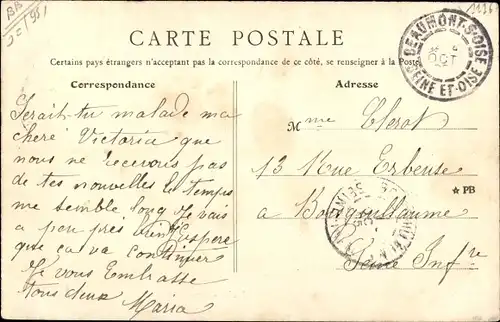 BB
CARTE POSTALE
Certains pays étrangers n'acceptant pas la correspondance de ce côté, se renseigner à la Poste
Correspondance
Serait-tu malade ma
chere Victoria que
nous ne recevons pas
de tes nouvelles le temps
me semble long Je vais
a peu près bien J'espere
que ça va continuer
Je vous Embrasse
tous deux Maria
Adresse
Mme Clerot
13 Rue Erbeuse
a Bourgoullaume
Seine Infre
★ PB
BEAUMONT-S-OISE
OCT
SEINE ET-OISE